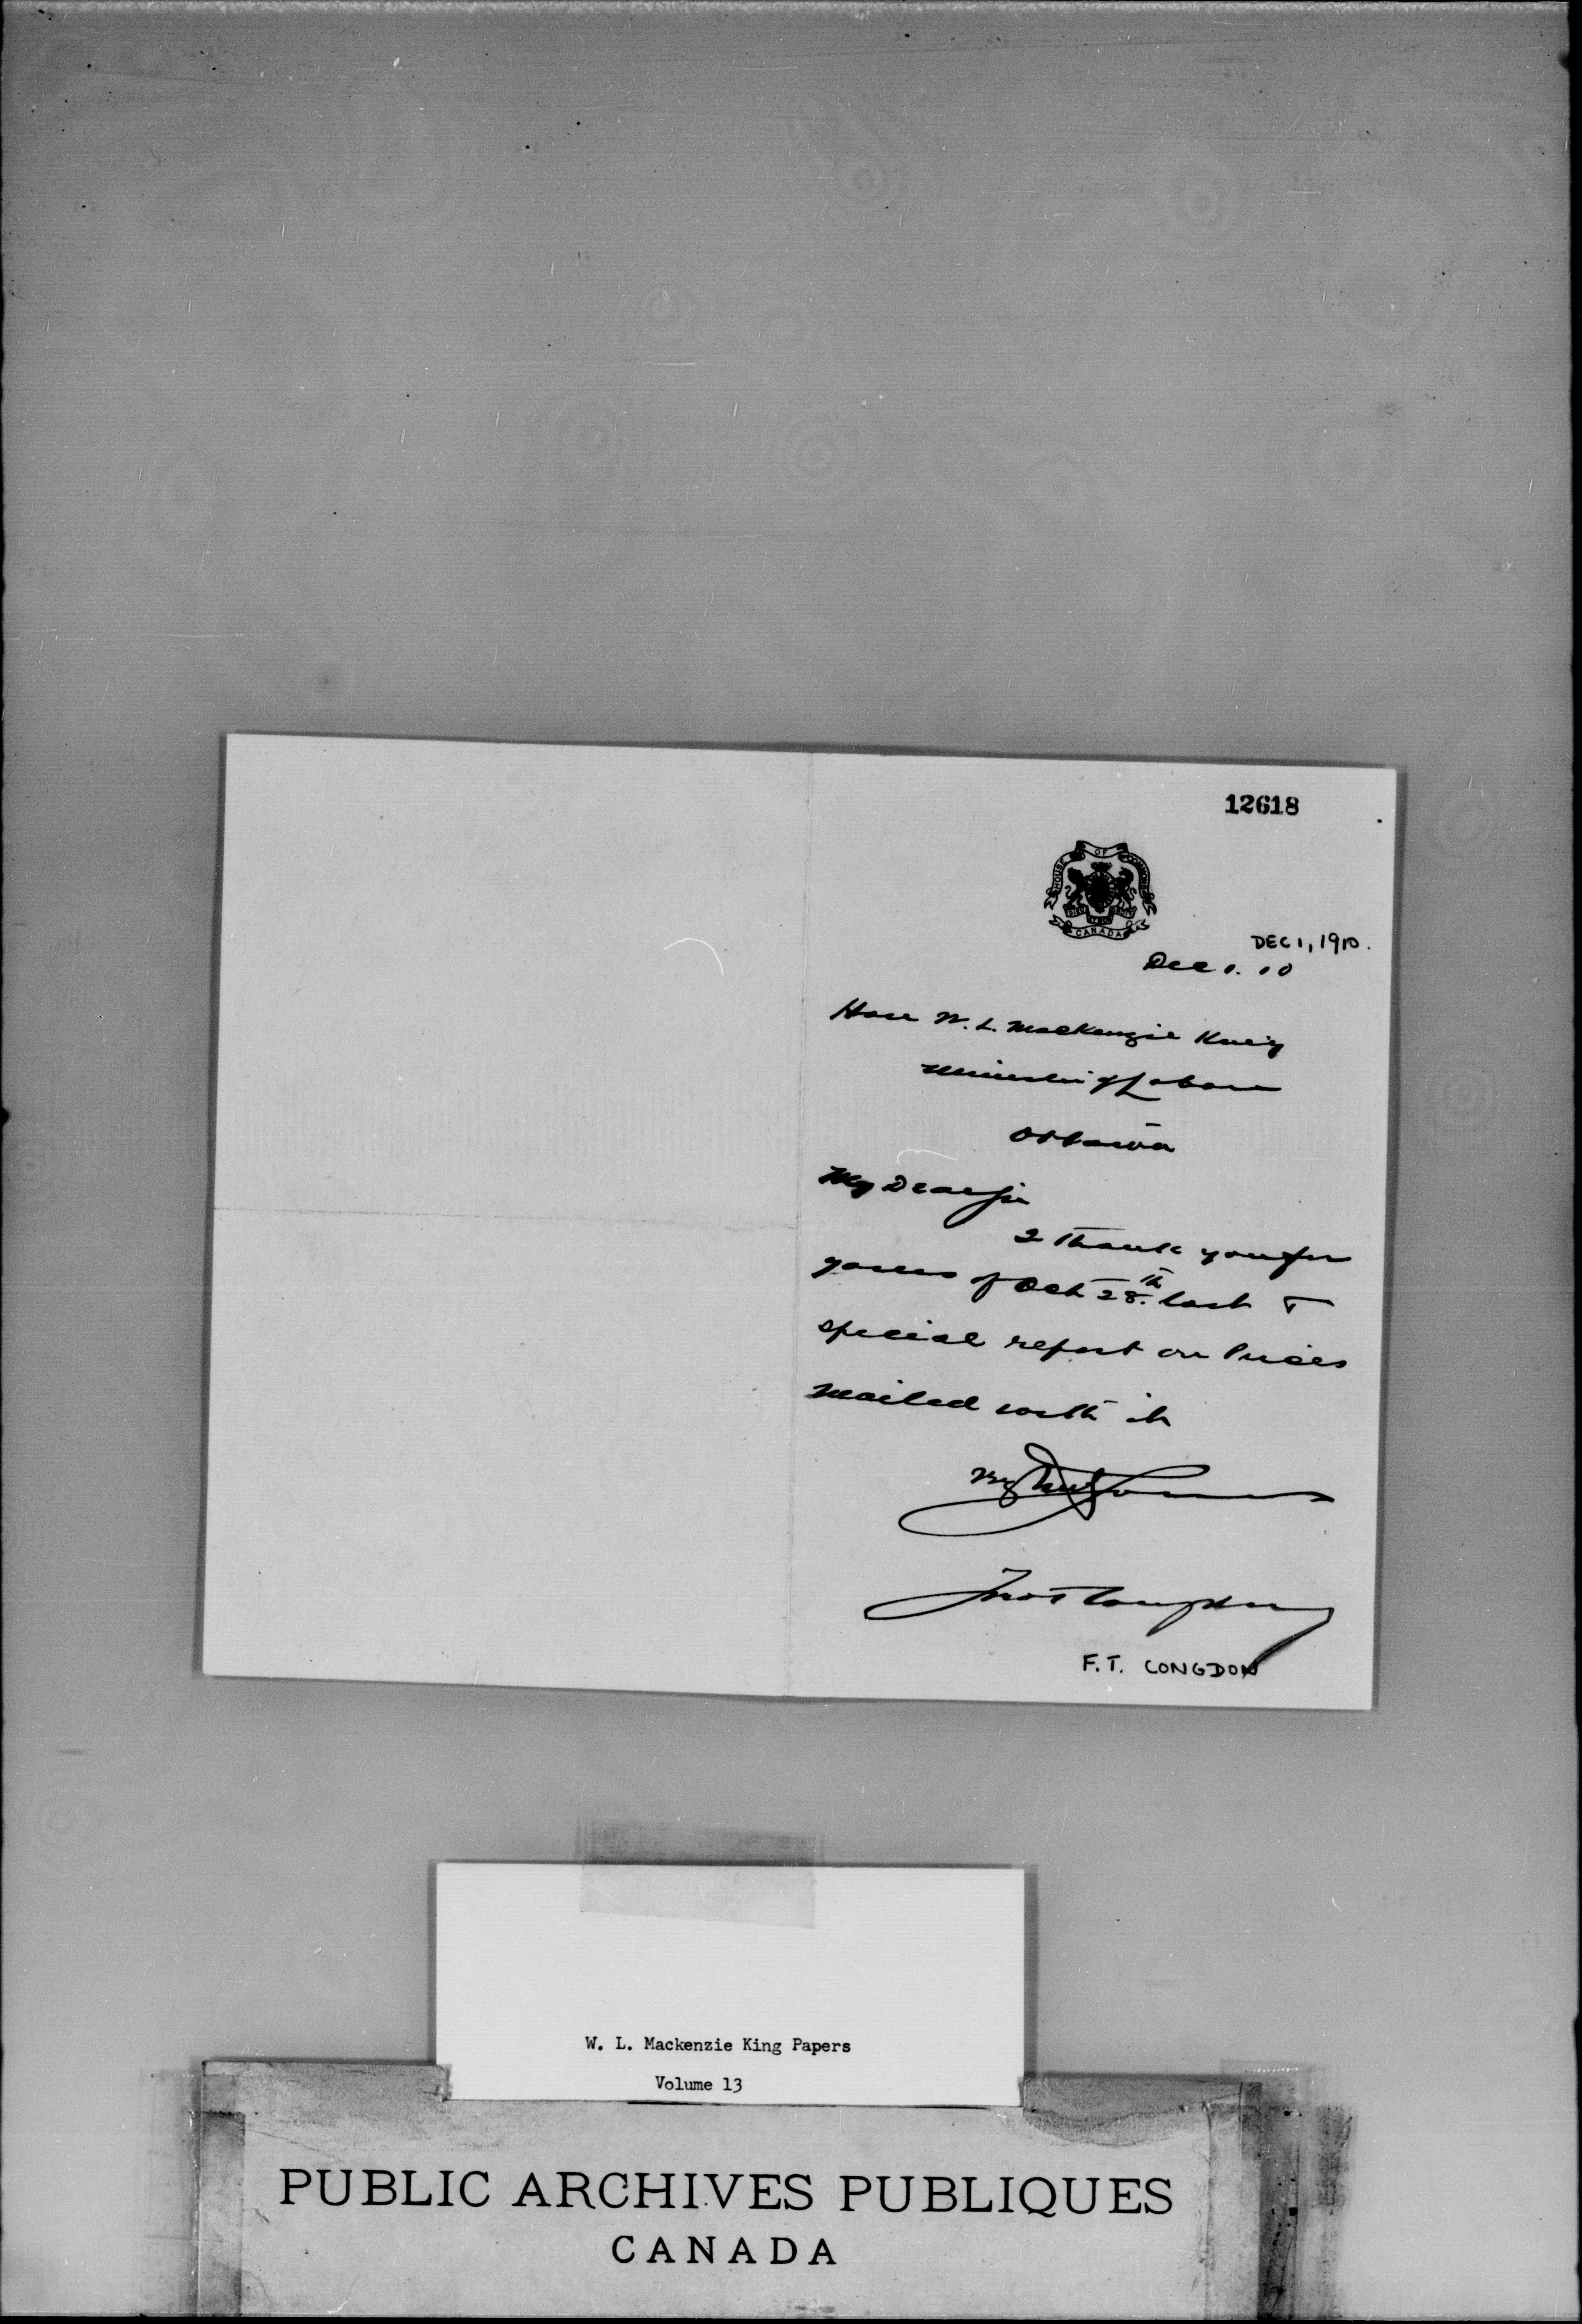 12618
HOUSE OF COMMONS
CANADA
DEC 1, 1910.
Dec 1. 10
Hon W. L. Mackenzie King
Minister of Labour
Ottawa
My Dear Sir
I thank you for
yours of Oct 28th. last &
special report on Prices
mailed with it
Yours
F. T. Congdon
F.T. CONGDON
W. L. Mackenzie King Papers
Volume 13
PUBLIC ARCHIVES PUBLIQUES
CANADA